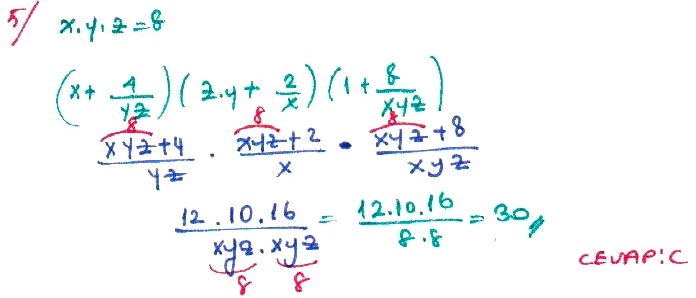 5/ x.y.z=8
(x + 4/yz) (z.y + 2/x) (1 + 8/xyz)
8 8 8
xyz+4/yz . xyz+2/x . xyz+8/xyz
12.10.16/xyz.xyz = 12.10.16/8.8 = 30//
8 8
CEVAP:C